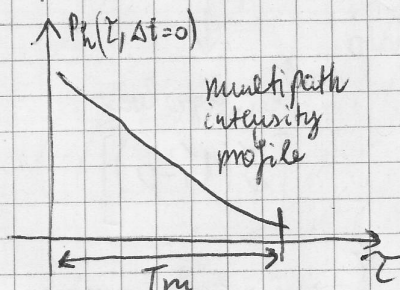 Ph(τ, Δt=0)
multipath
intensity
profile
Tm
τ